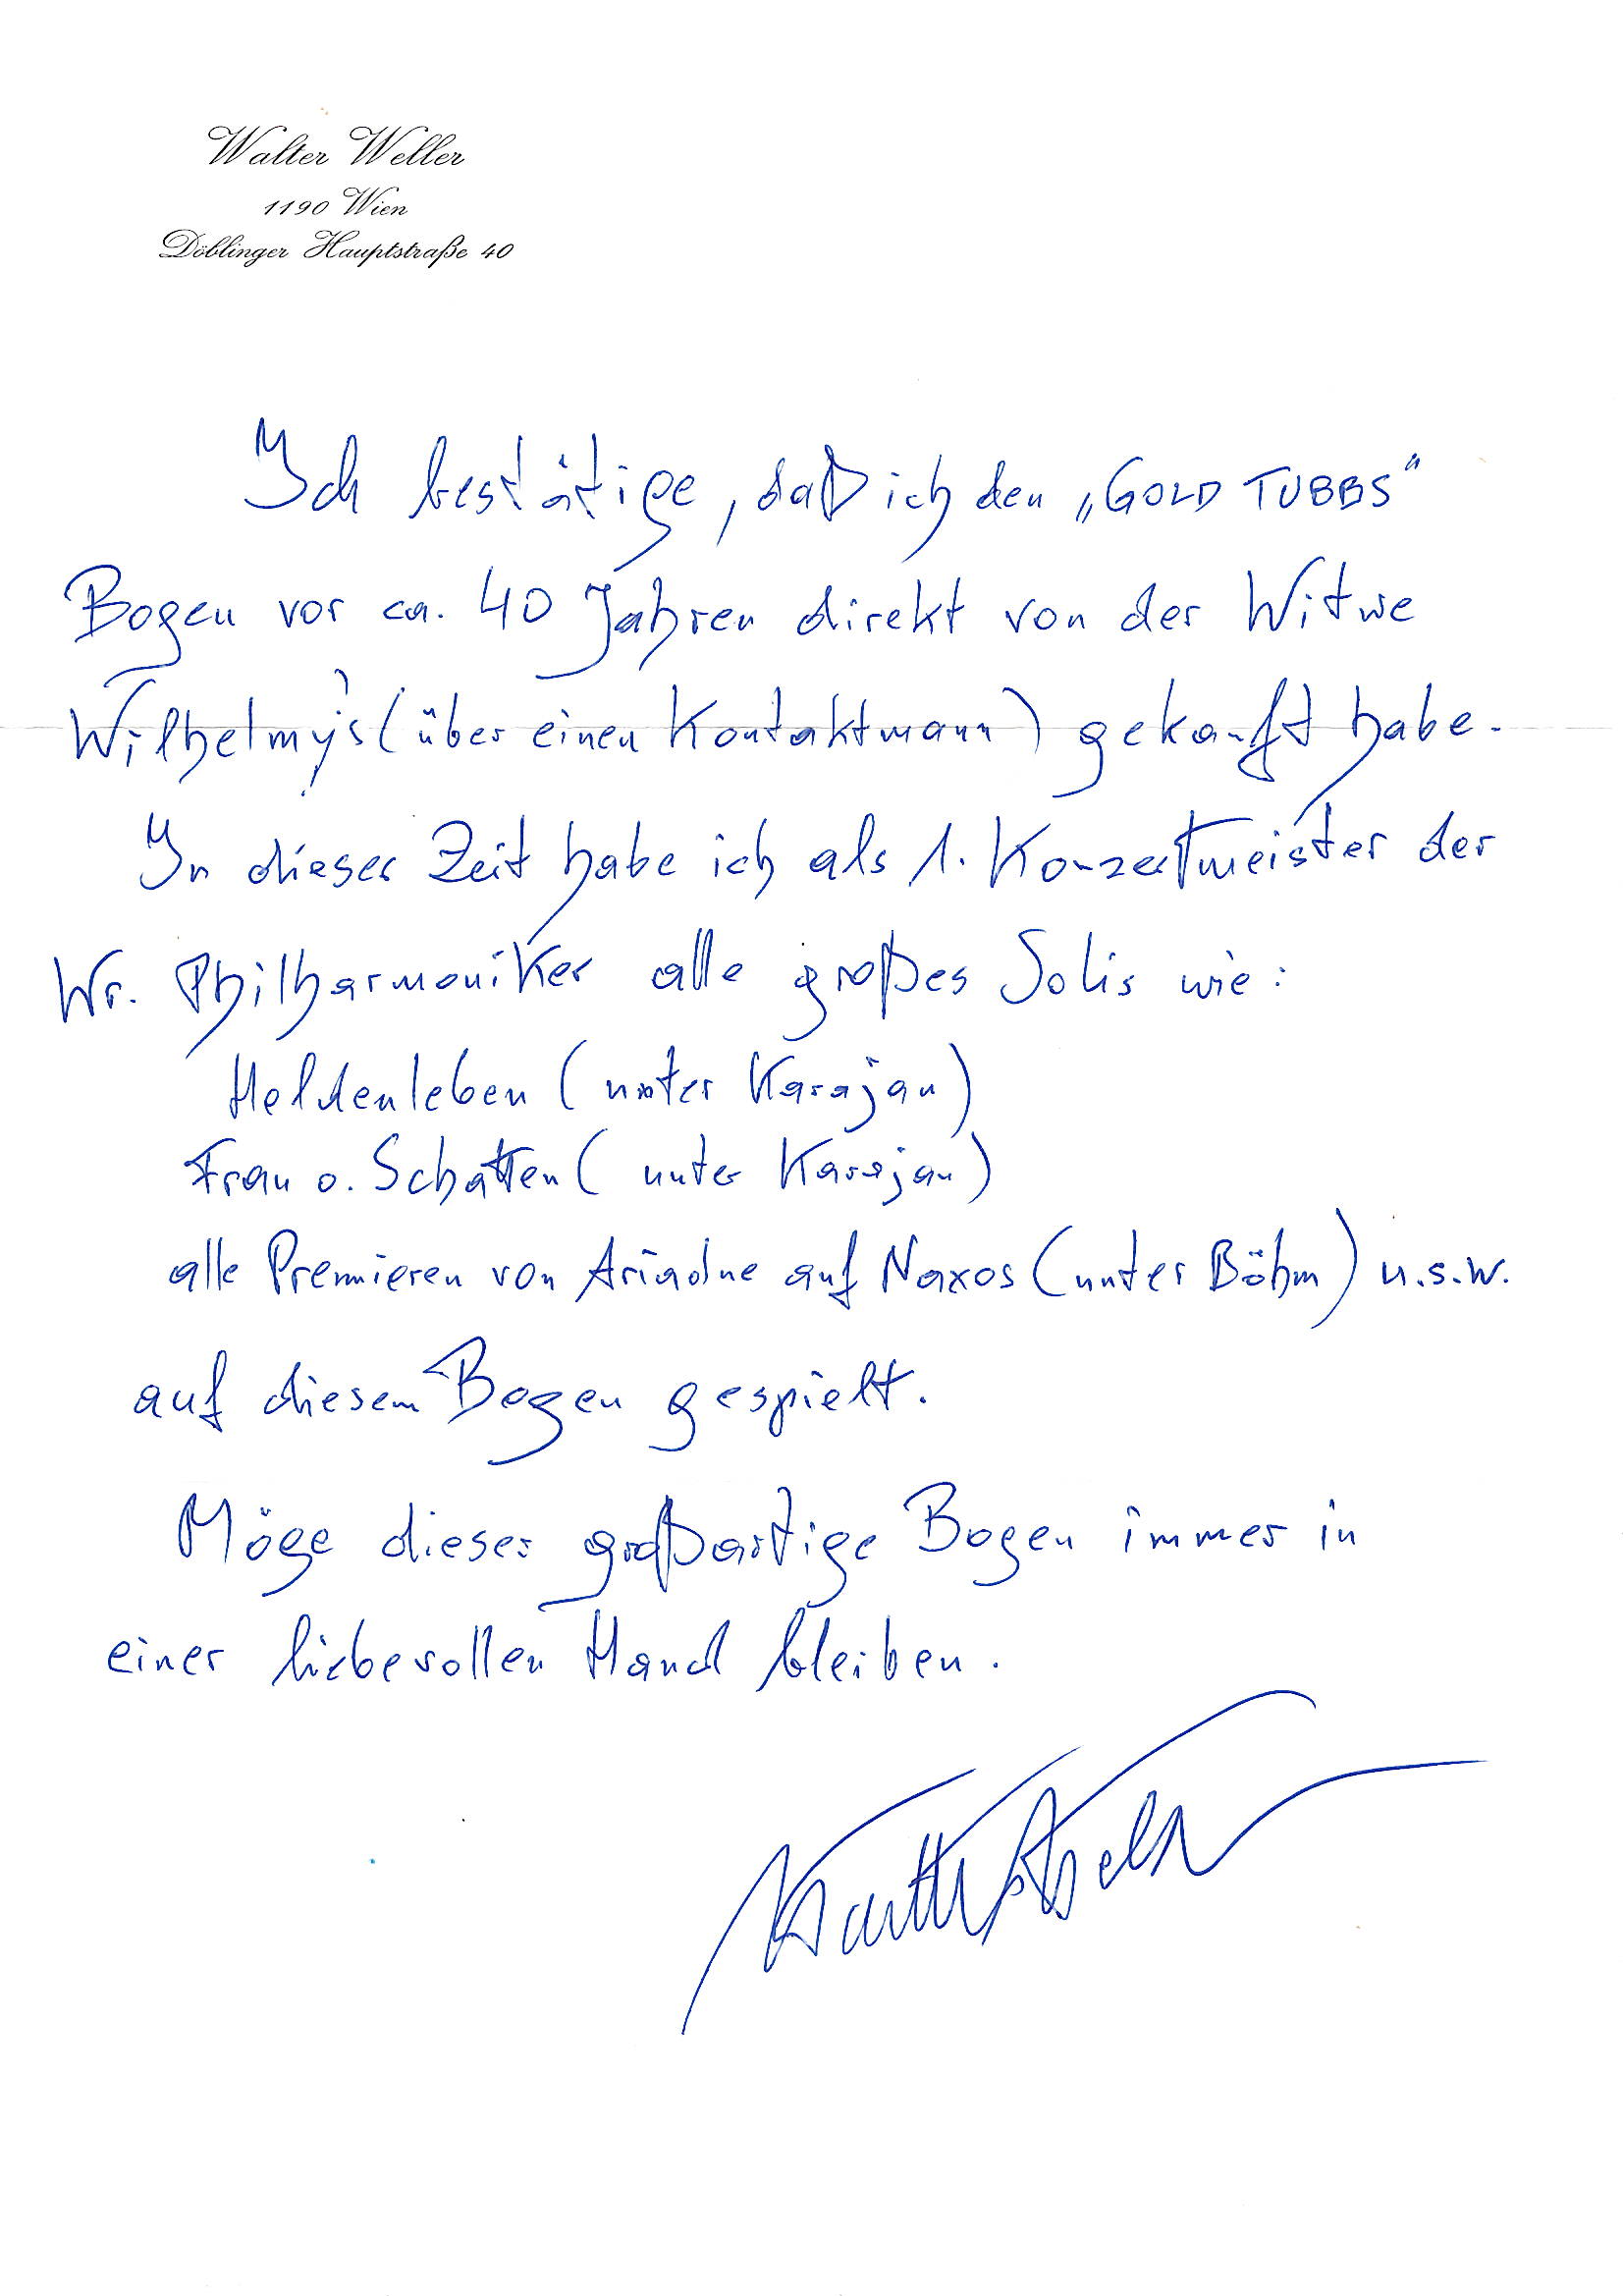 Walter Weller
1190 Wien
Döblinger Hauptstraße 40
Ich bestätige, daß ich den „GOLD TUBBS"
Bogen vor ca. 40 Jahren direkt von der Witwe
Wilhelmy's (über einen Kontaktmann) gekauft habe.
In dieser Zeit habe ich als 1. Konzertmeister der
Wr. Philharmoniker alle großes Solis wie:
Heldenleben (unter Karajan)
Frau o. Schatten (unter Karajan)
alle Premieren von Ariadne auf Naxos (unter Böhm) u.s.w.
auf diesem Bogen gespielt.
Möge dieser großartige Bogen immer in
einer liebevollen Hand bleiben.